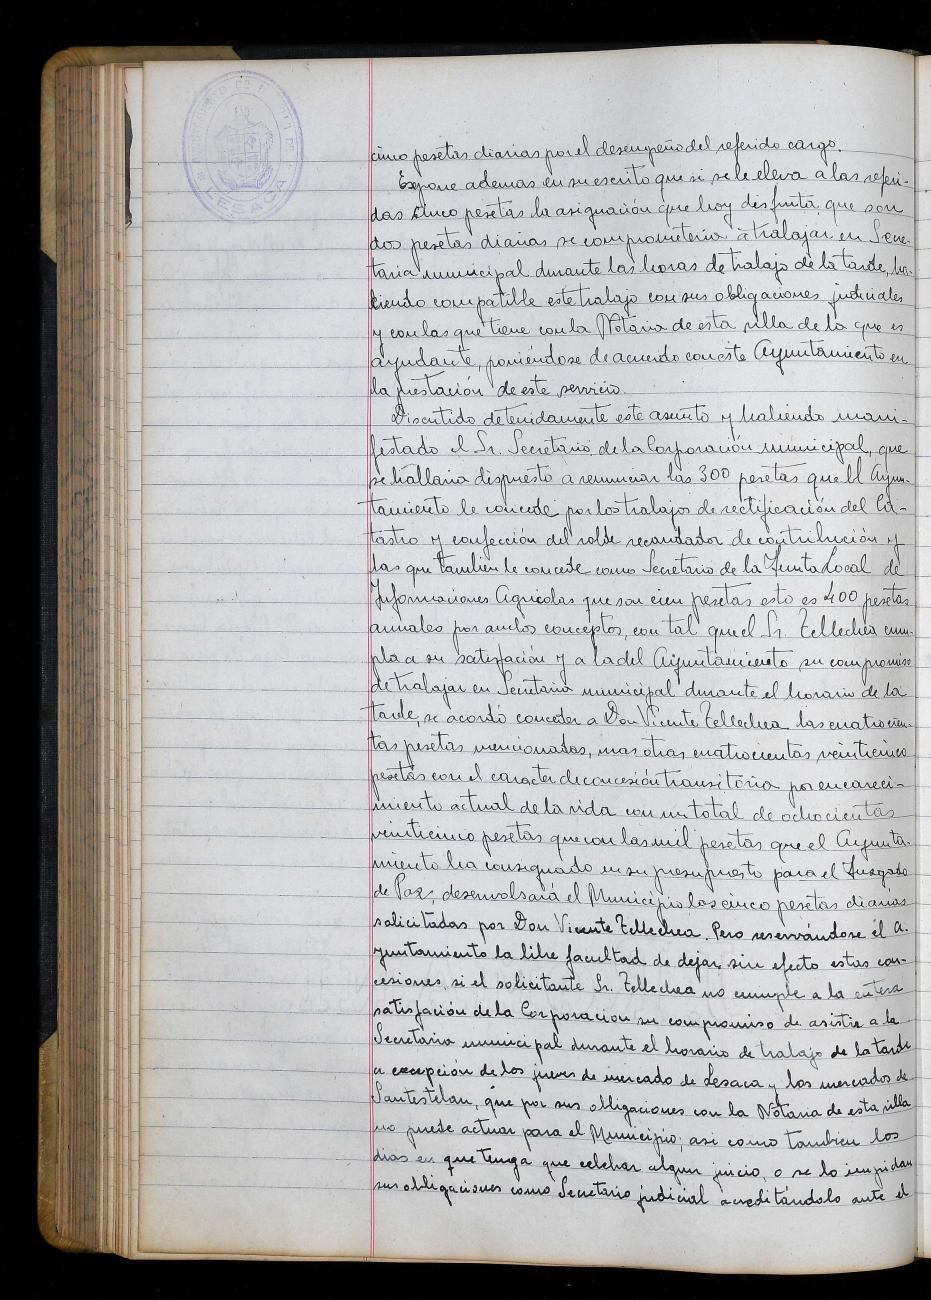 LESACA
cinco pesetas diarias por el desempeño del referido cargo.
Expone ademas en su escrito que si se le eleva a las referi-
das cinco pesetas la asignación que hoy disfruta que son
dos pesetas diarias se comprometeria a trabajar en Secre-
taria municipal durante las horas de trabajo de la tarde, ha-
ciendo compatible este trabajo con sus obligaciones judiciales
y con las que tiene con la Notaria de esta villa de la que es
ayudante, poniéndose de acuerdo con este Ayuntamiento en
la prestación de este servicio.
Discutido detenidamente este asunto y habiendo mani-
festado el Sr. Secretario de la Corporación municipal, que
se hallaria dispuesto a renunciar las 300 pesetas que el Ayun-
tamiento le concede por los trabajos de rectificación del Ca-
tastro y confección del rolde recaudador de contribución y
las que tambien le concede como Secretario de la Junta Local de
Informaciones Agricolas que son cien pesetas esto es 400 pesetas
anuales por ambos conceptos, con tal que el Sr. Tellechea cum-
pla a su satisfación y a la del Ayuntamiento su compromiso
de trabajar en Secretaria municipal durante el horario de la
tarde, se acordó conceder a Don Vicente Tellechea las cuatrocien-
tas pesetas mencionadas, mas otras cuatrocientas veinticinco
pesetas con el caracter de concesión transitoria por encareci-
miento actual de la vida con un total de ochocientas
veinticinco pesetas que con las mil pesetas que el Ayunta-
miento ha consignado en su presupuesto para el Juzgado
de Paz, desembolsará el Municipio las cinco pesetas diarias
solicitadas por Don Vicente Tellechea. Pero reservándose el A-
yuntamiento la libre facultad de dejar sin efecto estas con-
cesiones, si el solicitante Sr. Tellechea no cumple a la entera
satisfación de la Corporacion su compromiso de asistir a la
Secretaria municipal durante el horario de trabajo de la tarde
a excepción de los jueves de mercado de Lesaca y los mercados de
Santesteban, que por sus obligaciones con la Notaria de esta villa
no puede actuar para el Municipio; asi como tambien los
dias en que tenga que celebrar algun juicio, o se lo impidan
sus obligaciones como Secretario judicial acreditándolo ante el